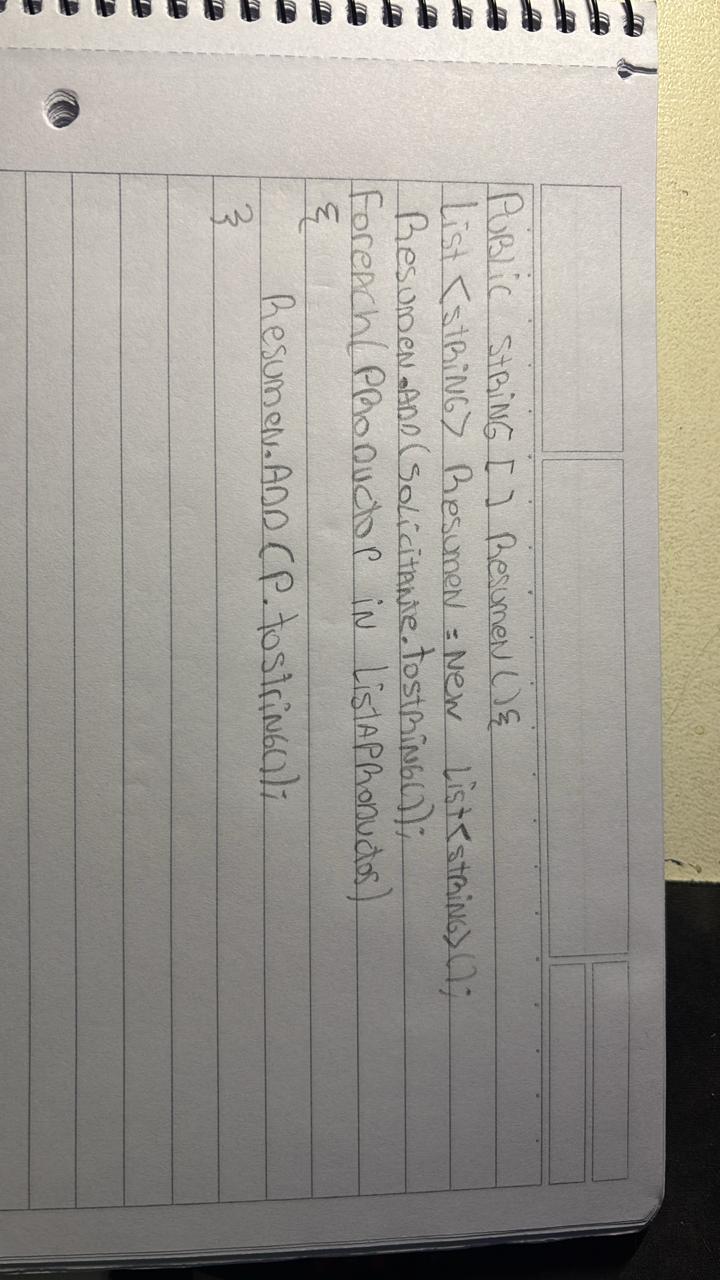 Public string [] Resumen(){
List <string> Resumen = new List<string>();
Resumen.Add(Solicitante.ToString());
Foreach(Producto P in ListaProductos)
{
Resumen.Add(P.tostring());
}